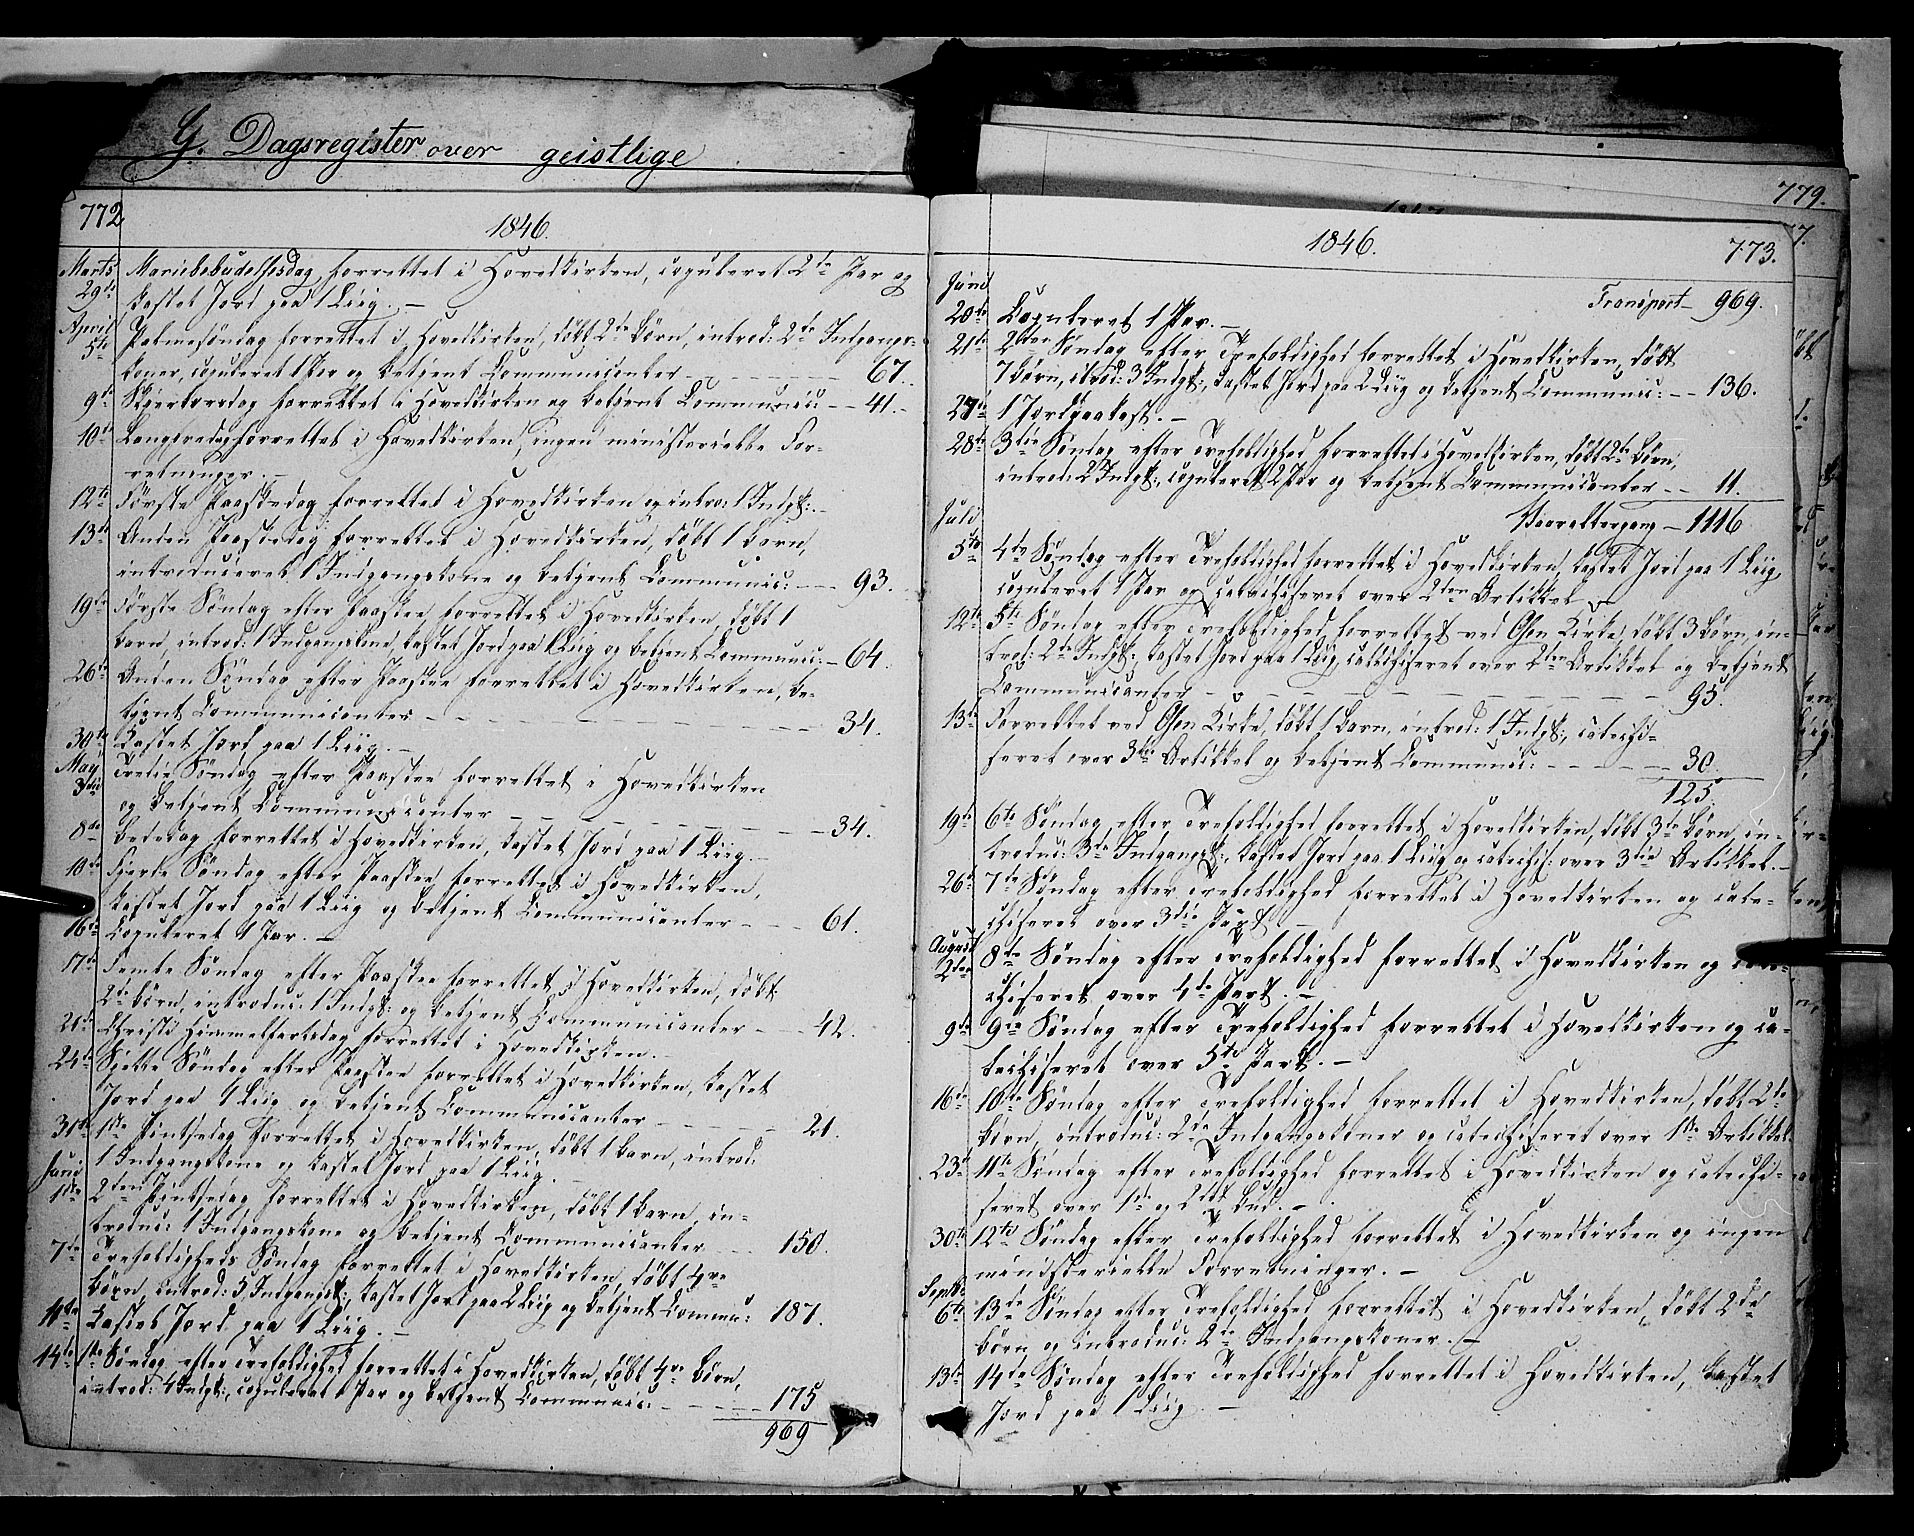 G. Dagsregister over geistlige
772
1846.
Marts Mariebebudelsesdag forrettet i Hovedkirken, copuleret 2de Par og
29de kastet Jord paa 1 Liig. —
April Palmesöndag forrettet i Hovedkirken, döbt 2de Börn, introd: 2de Indgangs-
5te koner, copuleret 1 Par og betjent Communicanter — 67.
9de Skjertorsdag forrettet i Hovedkirken og betjent Communic: — 41. —
10de Langfredag forrettet i Hovedkirken, ingen ministerielle For-
retninger. —
12te Förste Paaskedag forrettet i Hovedkirken og intro: 1 Indgk: —
13de Anden Paaskedag forrettet i Hovedkirken, döbt 1 Barn,
introduceret 1 Indgangskone og betjent Communic: — 93.
19de Förste Söndag efter Paaske forrettet i Hovedkirken, döbt 1
Barn, introd: 1 Indgangskone, kastet Jord paa 1 Liig og betjent Communic: — 64.
26de Anden Söndag efter Paaske forrettet i Hovedkirken, be-
tjent Communicanter — 34.
30te Kastet Jord paa 1 Liig. —
May Tredie Söndag efter Paaske forrettet i Hovedkirken
3die og betjent Communicanter — 34.
8de Bededag forrettet i Hovedkirken, kastet Jord paa 1 Liig. —
10de Fjerde Söndag efter Paaske forrettet i Hovedkirken,
kastet Jord paa 1 Liig og betjent Communicanter — 61.
16de Copuleret 1 Par. —
17de Femte Söndag efter Paaske forrettet i Hovedkirken, döbt
2de Börn, introduc: 1 Indgk: og betjent Communicanter — 42.
21de Christi Himmelfartsdag forrettet i Hovedkirken. —
24de Sjette Söndag efter Paaske forrettet i Hovedkirken, kastet
Jord paa 1 Liig og betjent Communicanter — 21.
31te 1ste Pintsedag forrettet i Hovedkirken, döbt 1 Barn, introd:
1 Indgangskone og kastet Jord paa 1 Liig. —
Juni 2den Pintsedag forrettet i Hovedkirken, döbt 1 Barn, in-
1ste troduc: 1 Indgangskone og betjent Communicanter — 150.
7de Trefoldigheds Söndag forrettet i Hovedkirken, döbt 4re
Börn, introd: 5 Indgangsk:, kastet Jord paa 2 Liig og betjent Commu: 187.
11te Kastet Jord paa 1 Liig. —
14de 1ste Söndag efter Trefoldighed forrettet i Hovedkirken, döbt 4re Börn,
introd: 4 Indgk:, copuleret 1 Par og betjent Communic: — 175
969
779.
1846.
773.
Juni
Transport — 969.
20de Copuleret 1 Par. —
21de 2den Söndag efter Trefoldighed forrettet i Hovedkirken, döbt
7 Börn, introd: 3 Indgk:, kastet Jord paa 2 Liig og betjent Communic: — 136.
27de 1 Jordpaakast. —
28de 3die Söndag efter Trefoldighed forrettet i Hovedkirken, döbt 2de Börn,
introd: 2 Indgk:, copuleret 2 Par og betjent Communicanter — 11.
Juli
Vaaraltergang — 1116.
5te 4de Söndag efter Trefoldighed forrettet i Hovedkirken, kastet Jord paa 1 Liig,
copuleret 1 Par og catechiseret over 2den Artikkel —
12te 5te Söndag efter Trefoldighed forrettet ved Glen Kirke, döbt 3 Börn, in-
trod: 2de Indgk:, kastet Jord paa 1 Liig, catechiseret over 2den Artikkel og betjent
Communicanter — 95.
13de Forrettet ved Glen Kirke, döbt 1 Barn, introd: 1 Indgk:, catechi-
seret over 3die Artikkel og betjent Communic: — 30.
125.
19de 6te Söndag efter Trefoldighed forrettet i Hovedkirken, döbt 3de Börn, in-
troduc: 3de Indgangsk:, kastet Jord paa 1 Liig og catechis: over 3die Artikkel. —
26de 7de Söndag efter Trefoldighed forrettet i Hovedkirken og cate-
chiseret over 3die Part —
August 8de Söndag efter Trefoldighed forrettet i Hovedkirken og cate-
2den chiseret over 4de Part. —
9de 9de Söndag efter Trefoldighed forrettet i Hovedkirken og ca-
techiseret over 5te Part. —
16de 10de Söndag efter Trefoldighed forrettet i Hovedkirken, döbt 2de
Börn, introduc: 2de Indgangskoner og catechiseret over 1ste Artikkel
23de 11te Söndag efter Trefoldighed forrettet i Hovedkirken og catechi-
seret over 1ste og 2det Bud. —
30te 12te Söndag efter Trefoldighed forrettet i Hovedkirken og ingen
ministerielle Forretninger. —
Septbr
6te 13de Söndag efter Trefoldighed forrettet i Hovedkirken, döbt 2de
Börn og introduc: 2de Indgangskoner. —
13de 14de Söndag efter Trefoldighed forrettet i Hovedkirken, kastet
Jord paa 1 Liig. —